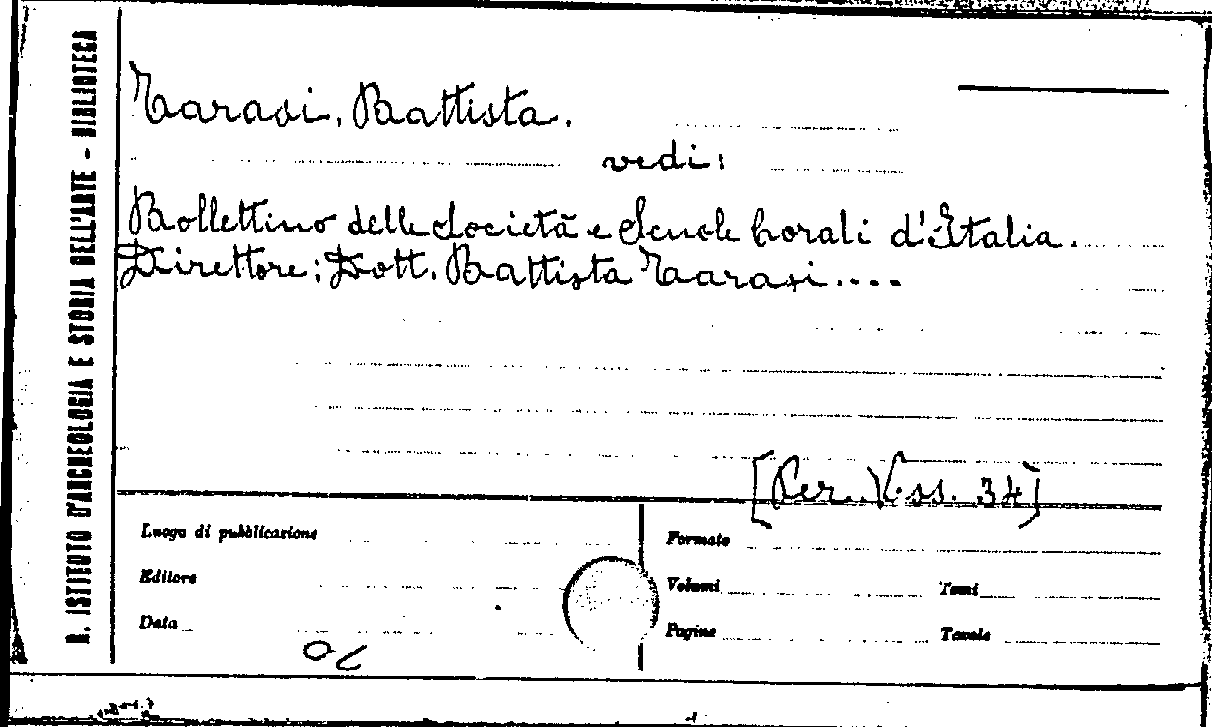 R. ISTITUTO D'ARCHEOLOGIA E STORIA DELL'ARTE - BIBLIOTECA
Tarasi, Battista.
vedi:
Bollettino delle Società e Scuole Corali d'Italia.
Direttore: Dott. Battista Tarasi....
[Per. Vess. 34]
Luogo di pubblicazione
Formato
Editore
Volumi
Tomi
Data
Pagine
Tavole
70